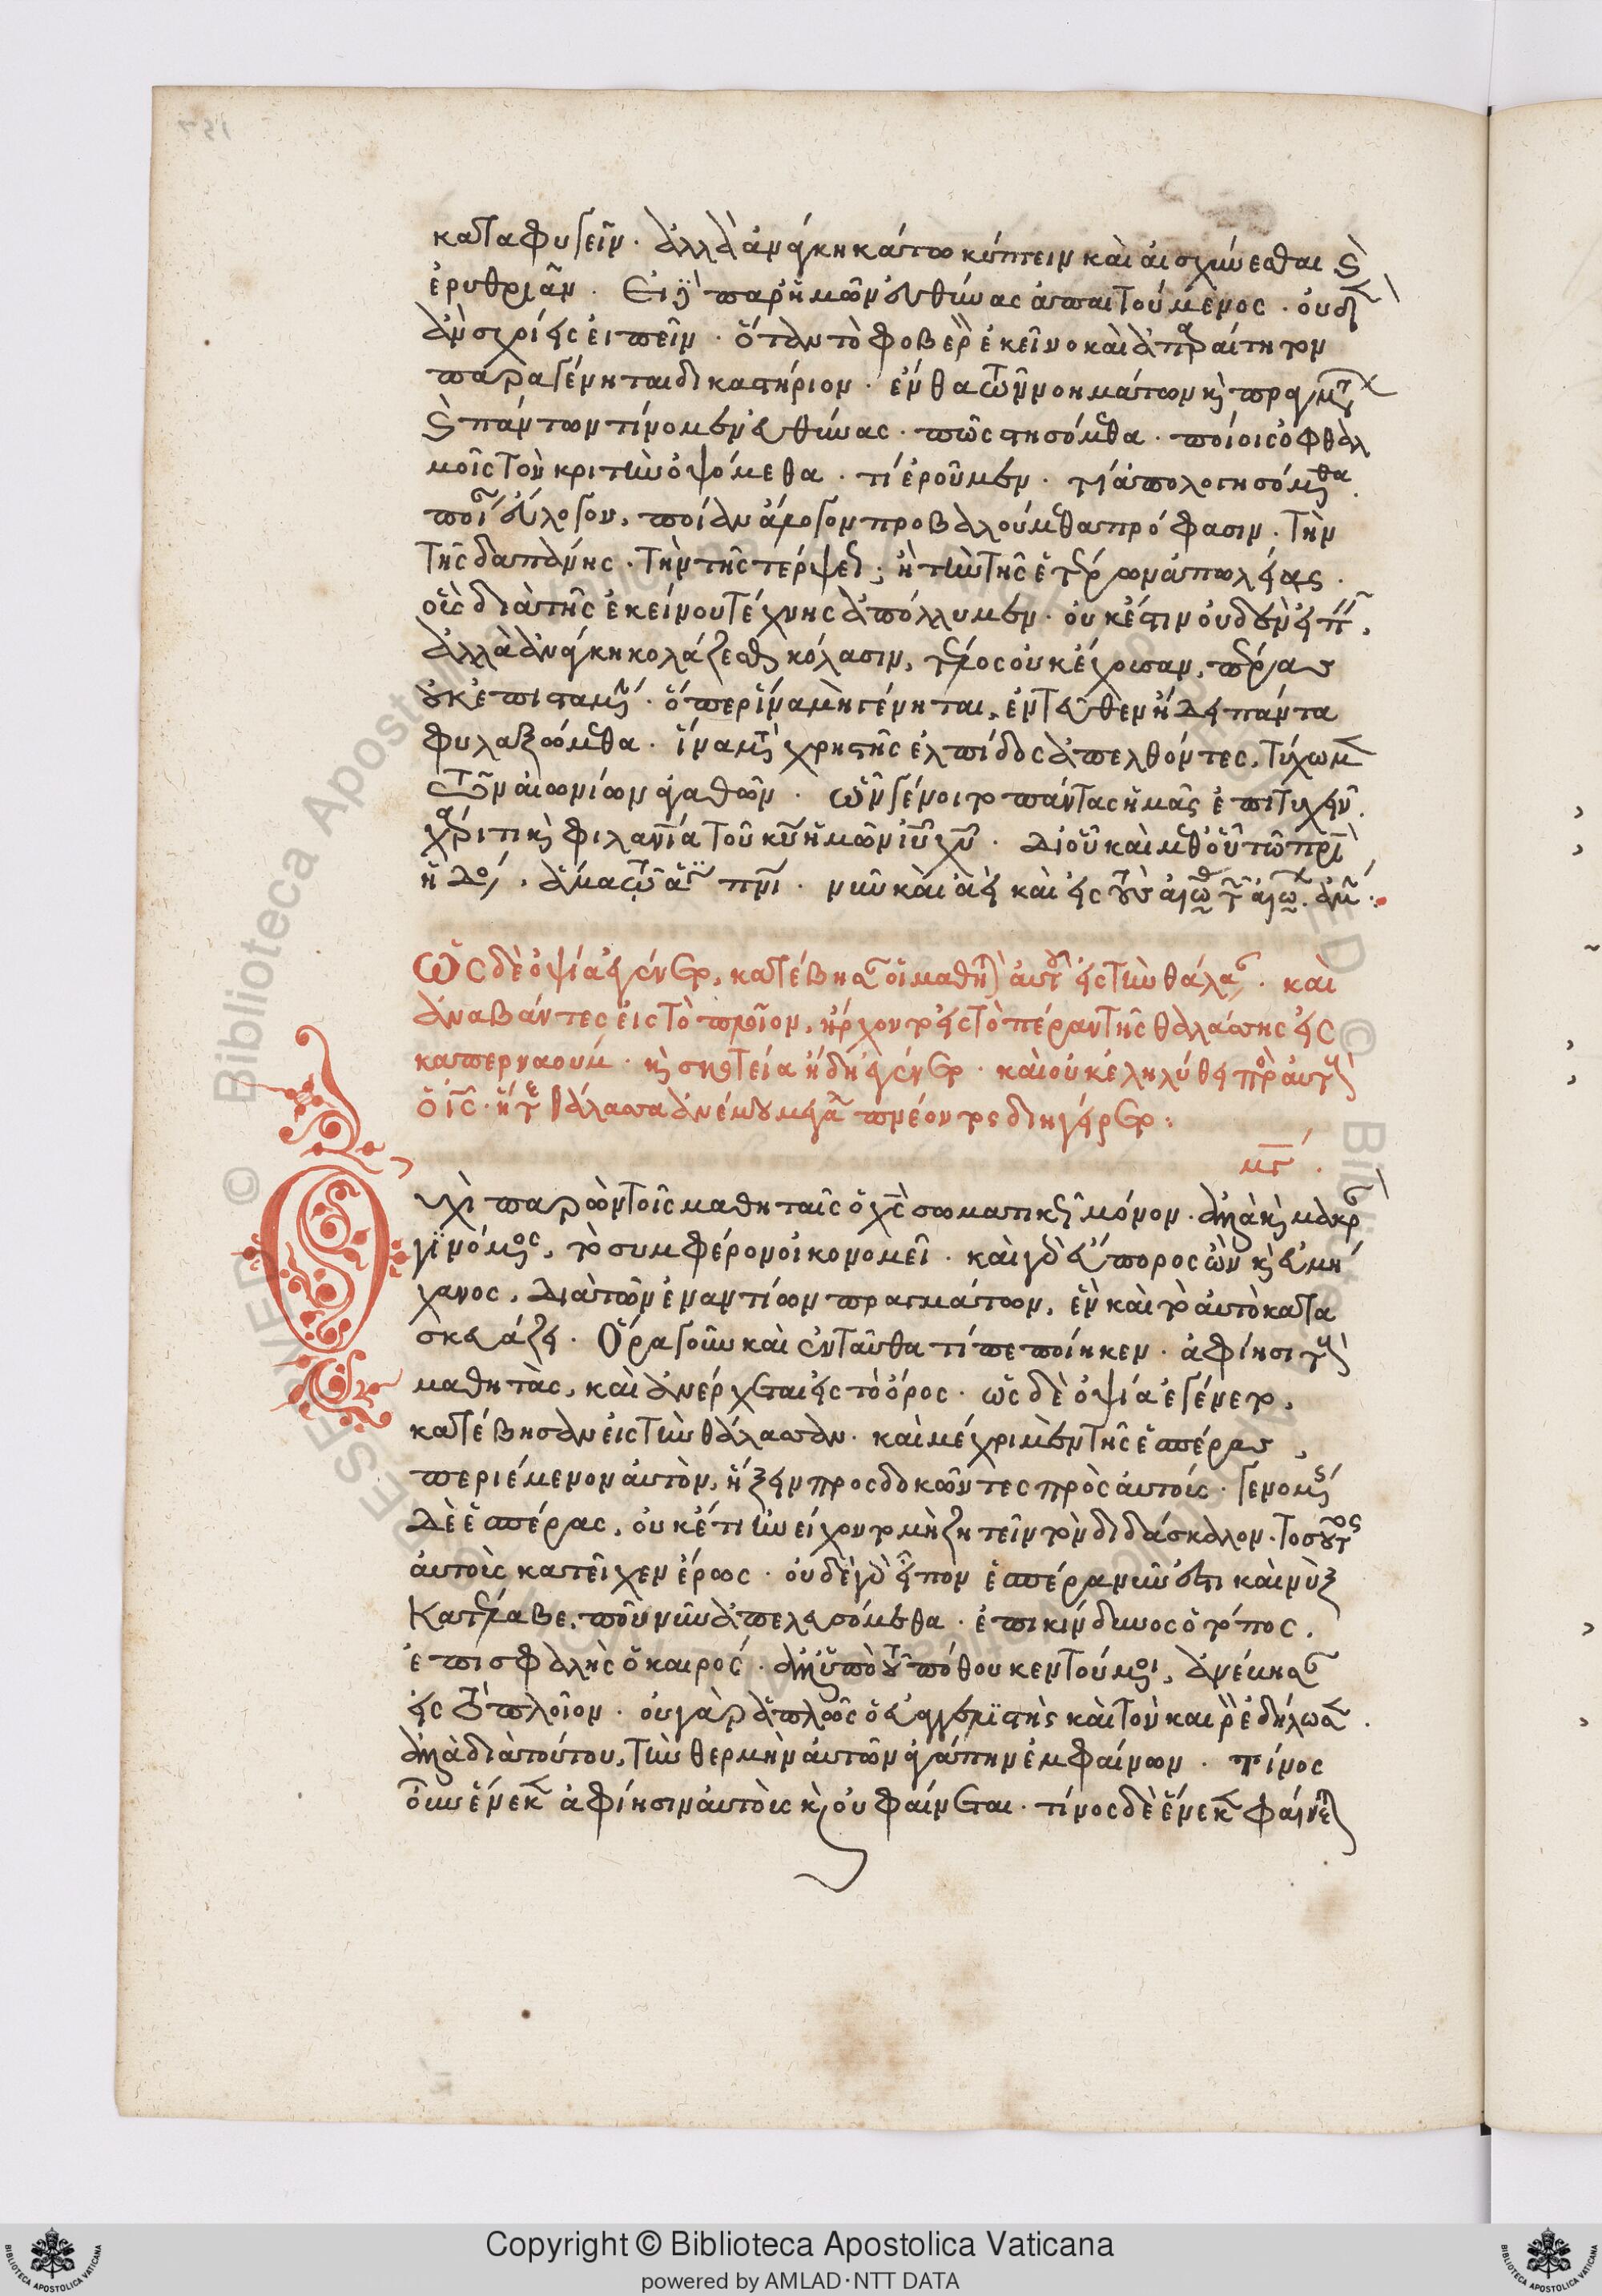 καταφυγεῖν. ἀλλὰ ἀνάγκη κάτω κύπτειν καὶ αἰσχύνεσθαι καὶ
ἐρυθριᾶν. εἰ παρ' ἡμῶν εὐθύνας ἀπαιτούμενος. οὐδὲν
ἂν σχοίης εἰπεῖν. ὅταν τὸ φοβερὸν ἐκεῖνο καὶ ἀπαραίτητον
παραγένηται δικαστήριον. ἔνθα τῶν νοημάτων καὶ πραγμάτων
καὶ πάντων τίνομεν εὐθύνας. πῶς στησόμεθα. ποίοις ὀφθαλ
μοῖς τὸν κριτὴν ὀψόμεθα. τί ἐροῦμεν. τί ἀπολογησόμεθα
ποίαν εὔλογον, ποίαν ἄλογον προβαλούμεθα πρόφασιν. τὴν
τῆς δαπάνης. τὴν τῆς τέρψεως. ἢ τὴν τῆς ἑτέρων ἀπωλείας.
οὓς διὰ τῆς ἐκείνου τέχνης ἀπόλλυμεν. οὐκ ἔστιν οὐδὲν εἰπεῖν,
ἀλλὰ ἀνάγκη κολάζεσθαι κόλασιν, τέλος οὐκ ἔχουσαν, πέρας
οὐκ ἐπισταμένην. ὅπερ ἵνα μὴ γένηται, ἐντεῦθεν ἤδη πάντα
φυλαξώμεθα. ἵνα μετὰ χρηστῆς ἐλπίδος ἀπελθόντες, τύχωμεν
τῶν αἰωνίων ἀγαθῶν. ὧν γένοιτο πάντας ἡμᾶς ἐπιτυχεῖν.
χάριτι καὶ φιλανθρωπίᾳ τοῦ κυ ἡμῶν ιυ χυ. δι' οὗ καὶ μεθ' οὗ τῷ πρὶ
ἡ δόξα, ἅμα τῷ ἁγίῳ πνι. νῦν καὶ ἀεὶ καὶ εἰς τοὺς αἰῶνας τῶν αἰώνων. ἀμήν.
Ὡς δὲ ὀψία ἐγένετο, κατέβησαν οἱ μαθηταὶ αὐτοῦ εἰς τὴν θάλασσαν. καὶ
ἀναβάντες εἰς τὸ πλοῖον, ἤρχοντο εἰς τὸ πέραν τῆς θαλάσσης εἰς
καπερναούμ. καὶ σκοτεία ἤδη ἐγένετο. καὶ οὐκ ἐληλύθει πρὸς αὐτοὺς
ὁ ις. ἥ τε θάλασσα ἀνέμου μεγάλου πνέοντος διηγείρετο:
μβ.
Οὐχὶ παρὼν τοῖς μαθηταῖς ὁ χς σωματικῶς μόνον. ἀλλὰ καὶ μακρὰν
γινόμενος, τὸ συμφέρον οἰκονομεῖ. καὶ γὰρ εὔπορος ὢν καὶ εὐμή
χανος, διὰ τῶν ἐναντίων πραγμάτων, ἓν καὶ τὸ αὐτὸ κατα
σκευάζει. Ὅρα γοῦν καὶ ἐνταῦθα τί πεποίηκεν. ἀφίησι τοὺς
μαθητὰς, καὶ ἀνέρχεται εἰς τὸ ὄρος. ὡς δὲ ὀψία ἐγένετο,
κατέβησαν εἰς τὴν θάλασσαν. καὶ μέχρι μὲν τῆς ἑσπέρας,
περιέμενον αὐτὸν, ἥξειν προσδοκῶντες πρὸς αὐτούς. γενομένης
δὲ ἑσπέρας, οὐκέτι ἠνείχοντο μὴ ζητεῖν τὸν διδάσκαλον. τοσοῦτος
αὐτοὺς κατεῖχεν ἔρως. οὐδὲ γὰρ εἶπον ἑσπέρα νῦν ἐστι καὶ νὺξ
κατέλαβε, ποῦ νῦν ἀπελευσόμεθα. ἐπικίνδυνος ὁ τόπος,
ἐπισφαλὴς ὁ καιρός. ἀλλ' ὑπὸ τοῦ πόθου κεντούμενοι, ἀνέβησαν
εἰς τὸ πλοῖον. οὐ γὰρ ἁπλῶς ὁ εὐαγγελιστὴς καὶ τὸν καιρὸν ἐδήλωσεν.
ἀλλὰ διὰ τούτου, τὴν θερμὴν αὐτῶν ἀγάπην ἐμφαίνων. τίνος
οὖν ἕνεκεν ἀφίησιν αὐτοὺς καὶ οὐ φαίνεται. τίνος δὲ ἕνεκεν φαίνεται
Copyright © Biblioteca Apostolica Vaticana
powered by AMLAD·NTT DATA